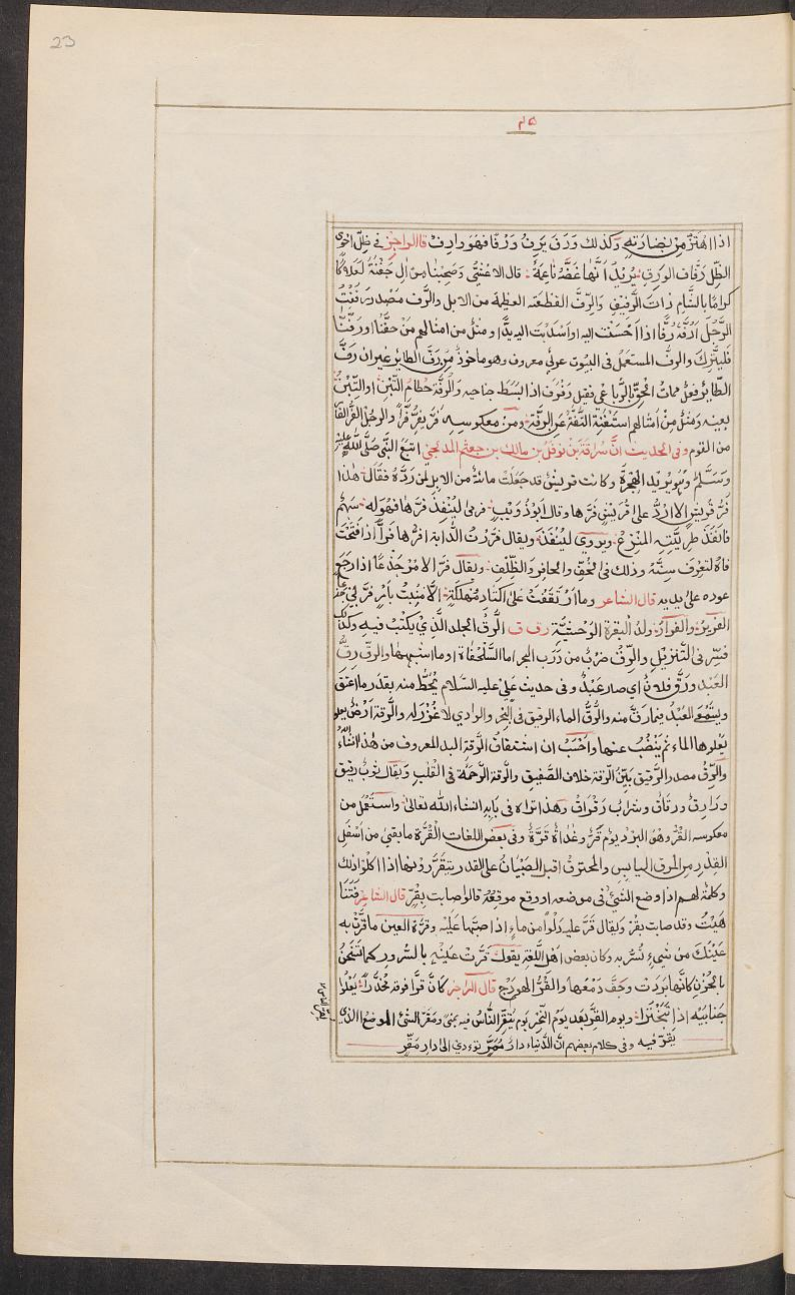 23
٢٥
اذا اهتز من نضارته وكذلك وَرَقَ يَرِقُ وَرْفًا فهو وارف قال الراجز في ظل احوى
الظل رفاف الورق يريد انها غضة ناعمة قال الاعشى وصحبنا من ال جفنة املاكا
كراما بالشام ذات الرفيف والرَّف القطعة العظيمة من الابل والرف مصدر رففت
الرجل ارفه رفا اذا احسنت اليه او اسديت اليه يدا ومثل من امثالهم من حفنا او رفنا
فليترك والرف المستعمل في البيوت عربي معروف وهو ماخوذ من رف الطائر غير ان رف
الطائر فعل ممات الحق بالرباعي فقيل رفرف اذا بسط جناحيه والرفة حطام التبن او التبن
بعينه ومثل من امثالهم استغنت التفة عن الرفة ومن معكوسه فر يفر فرا والرجل الفر الفار
من القوم وفى الحديث ان سراقة بن نوفل بن مالك بن جعشم المدلجى اتبع النبي صلى الله عليه
وسلم وهو يريد الهجرة وكانت قريش قد جعلت مائة من الابل لمن رده فقال هذا
فر قريش الا ارد على قريش فرها وقال ابو ذويب فرمى لينفذ فرها فهوى له سهم
فانفذ طرتيه المنزع ويروى لينفذ ويقال فررت الدابة افرها فرا اذا فتحت
فاه لتعرف سنه وذلك فى الخف والحافر والظلف ويقال فر الامر جذعا اذا رجع
عوده على بديه قال الشاعر وما ارتقيت على اكتاد مهلكة الا منيت بامر فر لي جذعا
الفرير والفرار ولد البقرة الوحشية رق ق الرق الجلد الذي يكتب فيه وكذلك
فسر في التنزيل والرق ضرب من دواب البحر اما السلحفاة او ما اشبهها والرق رق
العبد ورق فلان اي صار عبدا وفى حديث علي عليه السلام يحط منه بقدر ما اعتق
ويستسعى العبد فيما رق منه والرق الماء الرقيق في البحر والوادي لا غزر له والرقة ارض
يعلوها الماء ثم ينضب عنها واحسب ان اشتقاق الرقة البلد المعروف من هذا انشاء الله
والرق مصدر الرقيق بين الرقة خلاف الصفيق والرقة الرحمة فى القلب ويقال ثوب رقيق
ورارق ورقاق وشراب رقراق وهذا تراه في بابه انشاء الله تعالى واستعمل من
معكوسه القر وهو البرد يوم قر وغداة قرة وفى بعض اللغات القرة ما بقي من اسفل
القدر من المرق اليابس والمحترق اقبل الصبيان على القدر يتقررونها اذا اكلوا ذلك
وكلمة لهم اذا وضع الشئ فى موضعه او وقع موقعه قالوا صابت بقر قال الشاعر فتنا
هيئت وقد صابت بقر ويقال قر عليه دلوا من ماء اذا صبها عليه وقرة العين ما قرت به
عينك من شيء تسر به وكان بعض اهل اللغة يقول قرت عينه بالسرور كما تسخن
بالحزن كانها بردت وجف دمعها والقر الهودج قال الراجز كان قرا فوقه مخدرا يعلوا
جنابيه اذا تبخترا ويوم القر بعد يوم النحر يوم يتقر الناس فيه بمنى ومقر الشئ الموضع الذي
يقر فيه وفى كلام بعضهم ان الدنيا دار ممر تؤدي الى دار مقر